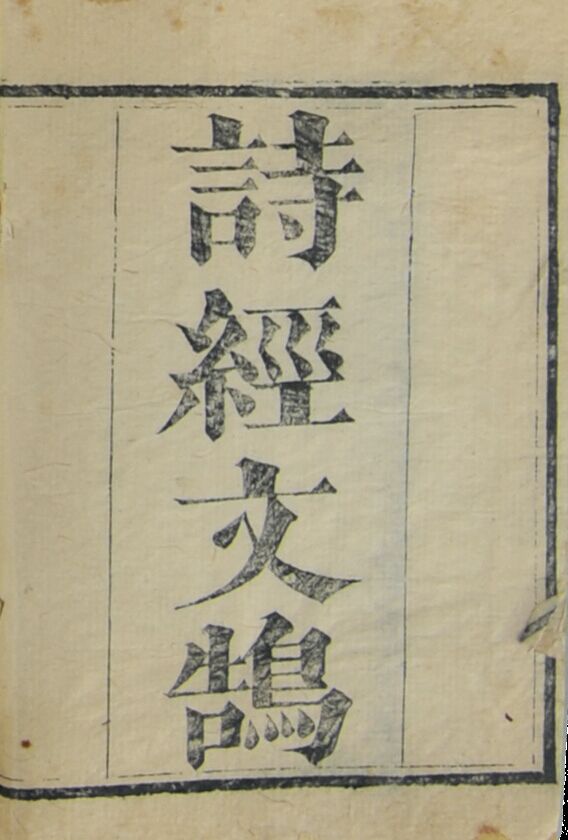 詩經文鵠